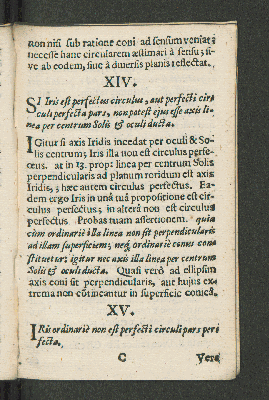 non nisi sub ratione coni ad sensum veniat;
necesse hanc circularem æstimari à sensu; si-
ve ab eodem, siue à diversis planis reflectat.
XIV.
SI Iris est perfectus circulus, aut perfecti cir-
culi perfecta pars, non potest ejus esse axis li-
nea per centrum Solis & oculi ducta.
IGitur si axis Iridis incedat per oculi & So-
lis centrum; Iris illa non est circulus perfe-
ctus. at in 13. prop: linea per centrum Solis
perpendicularis ad planum roridum est axis
Iridis, hæc autem circulus perfectus. Ea-
dem ergo Iris in unâ tuâ propositione est cir-
culus perfectus, in alterâ non est circulus
perfectus. Probas tuam assertionem. quia
cùm ordinariè illa linea non sit perpendicularis
ad illam superficiem; neq; ordinariè conus con-
stituetur: igitur nec axis illa linea per centrum
Solis & oculi ducta. Quasi verò ad ellipsim
axis coni sit perpendicularis, aut hujus ex-
trema non contineantur in superficie conicâ.
XV.
IRis ordinariè non est perfecti circuli pars per-
fecta.
C Verè